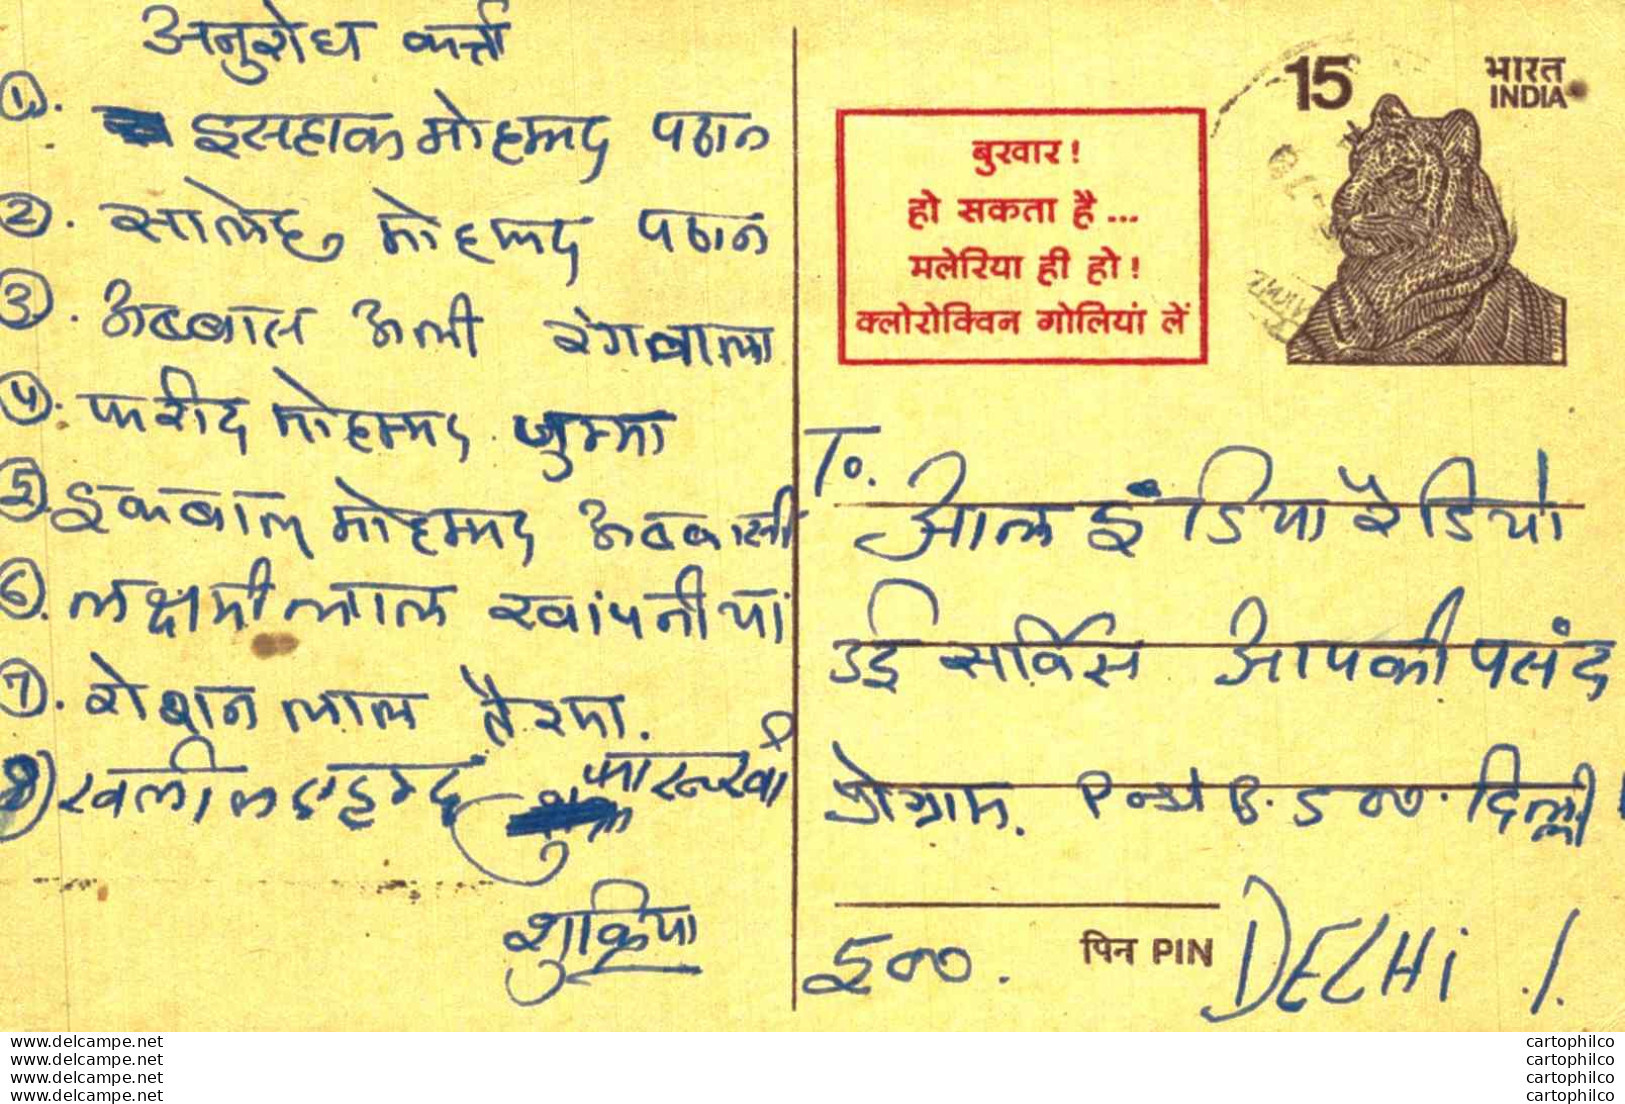 अनुरोध कर्त्ता
1. इसहाक मोहम्मद पठान
2. सालेह मोहम्मद पठान
3. अब्बास अली रंगवाला
4. फरीद मोहम्मद जुम्मा
5. इकबाल मोहम्मद अब्बासी
6. लक्षमी लाल
7. रोशन लाल
8) खलील एहमद
शुक्रिया
बुखार !
हो सकता है ...
मलेरिया ही हो !
क्लोरोक्विन गोलियां लें
15
भारत
INDIA
To.
आल इंडिया रेडियो
उर्दू सर्विस आपकी पसंद
प्रोग्राम. Post B. 500. दिल्ली
500.
पिन PIN
DELHI 1.
www.delcampe.net
www.delcampe.net
www.delcampe.net
www.delcampe.net
cartophilco
cartophilco
cartophilco
cartophilco